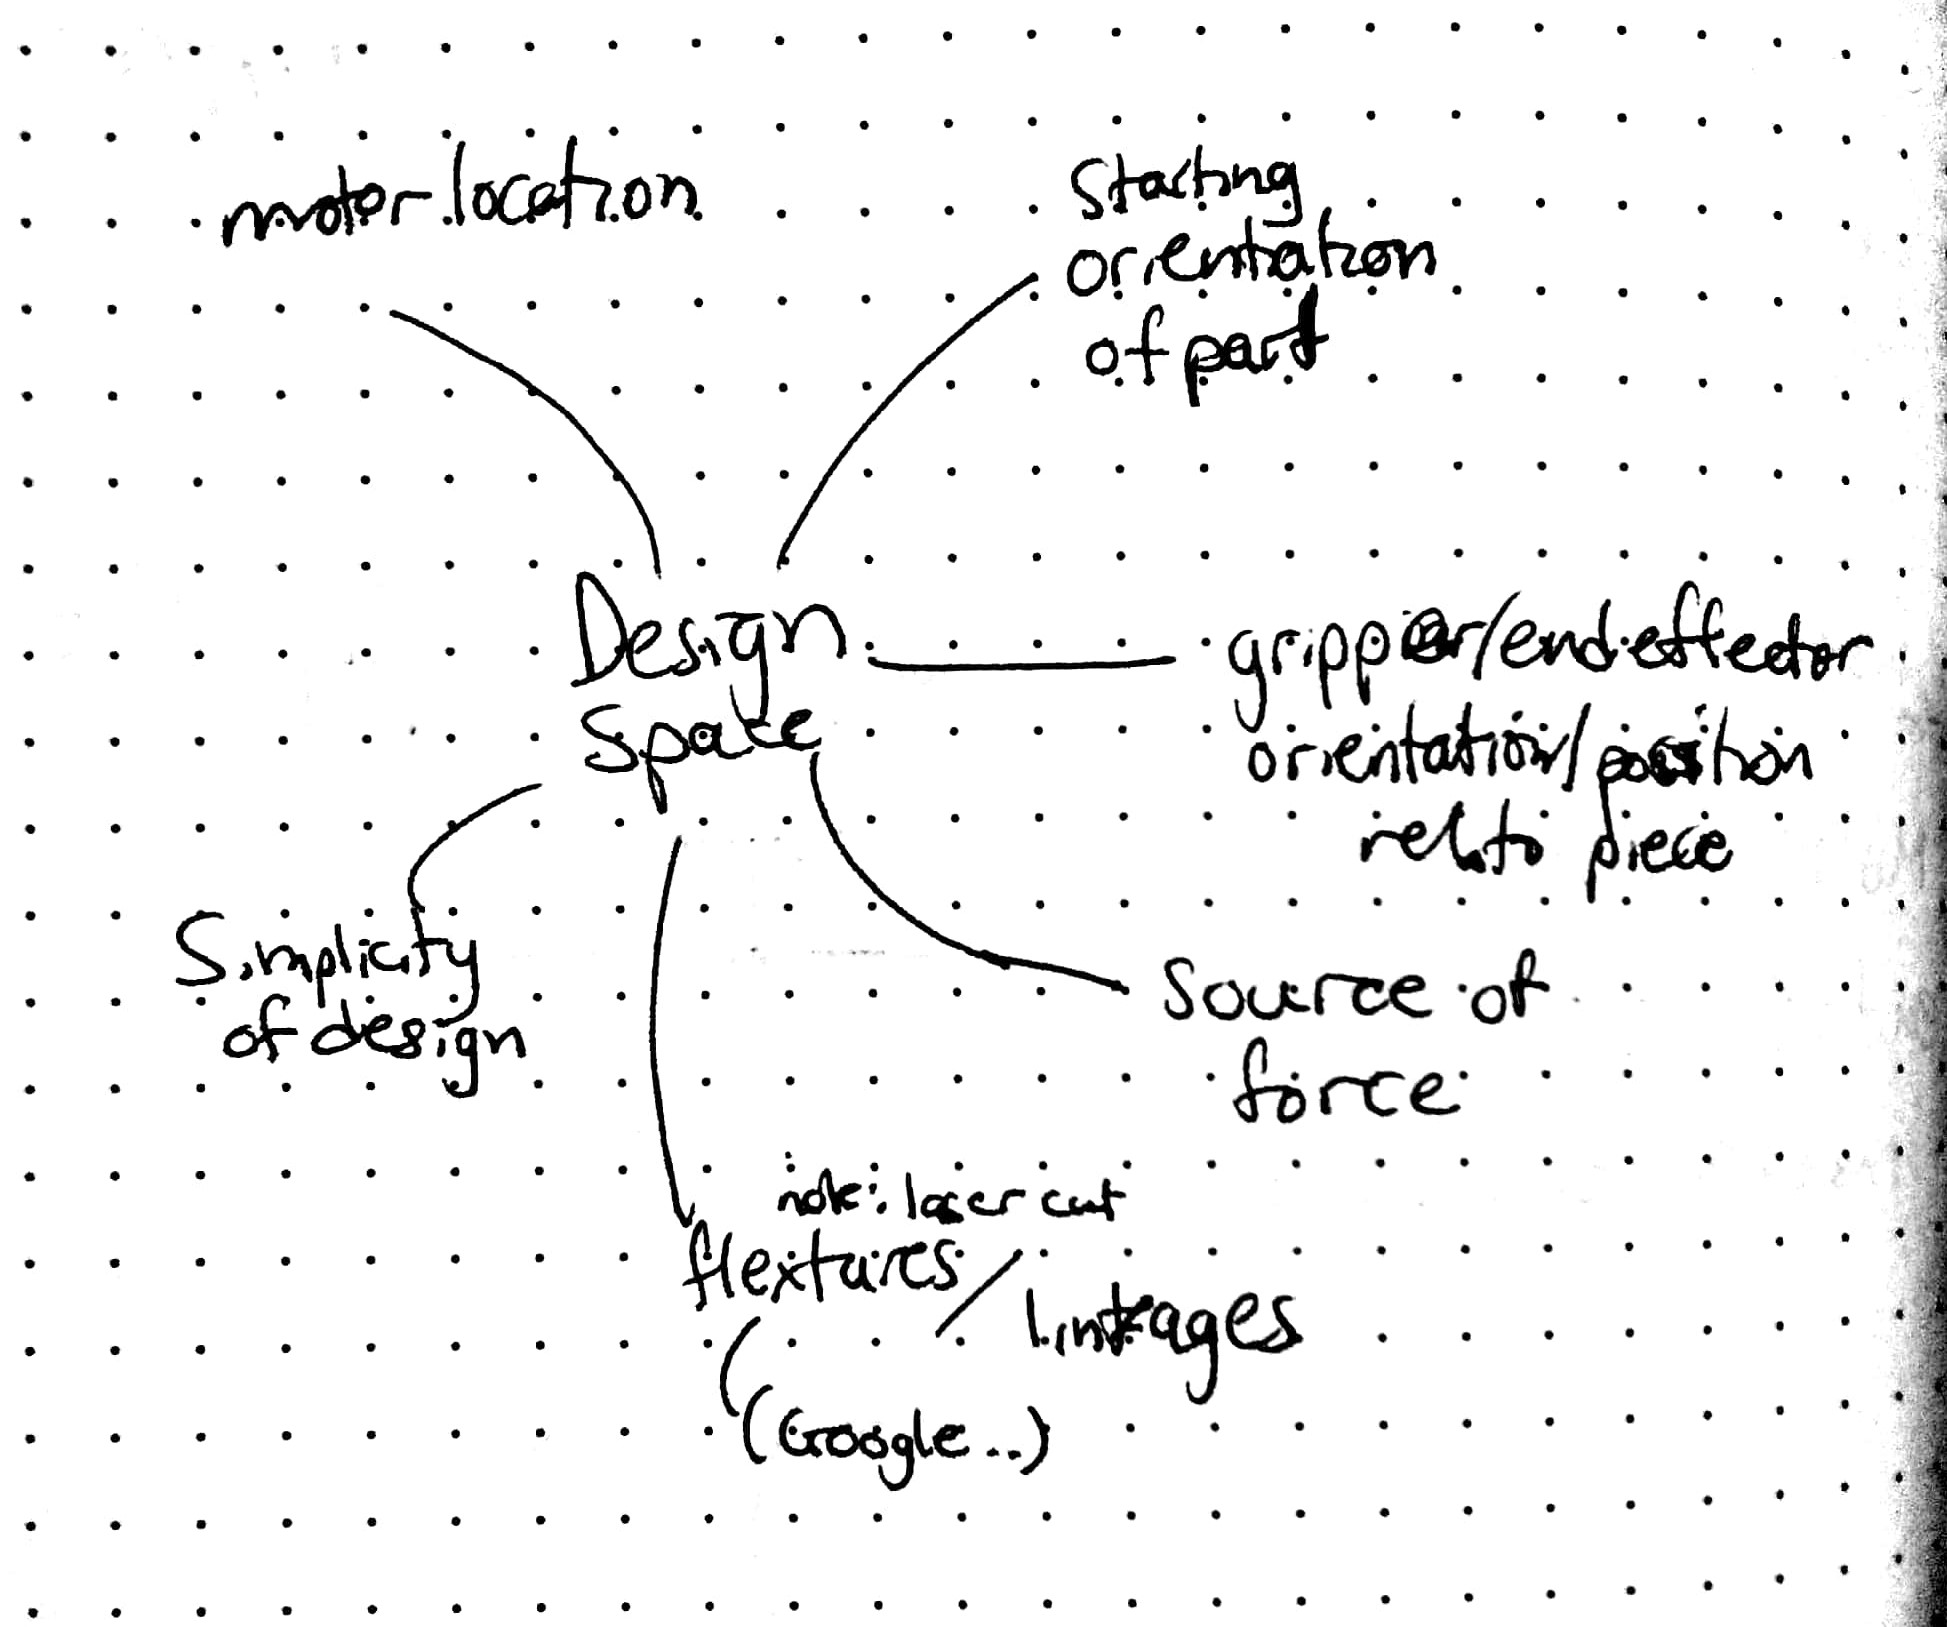 motor location
Starting
orientation
of part
Design
Space
gripper/end effector
orientation/position
rel. to piece
Simplicity
of design
Source of
force
note: laser cut
flextures / linkages
(Google...)